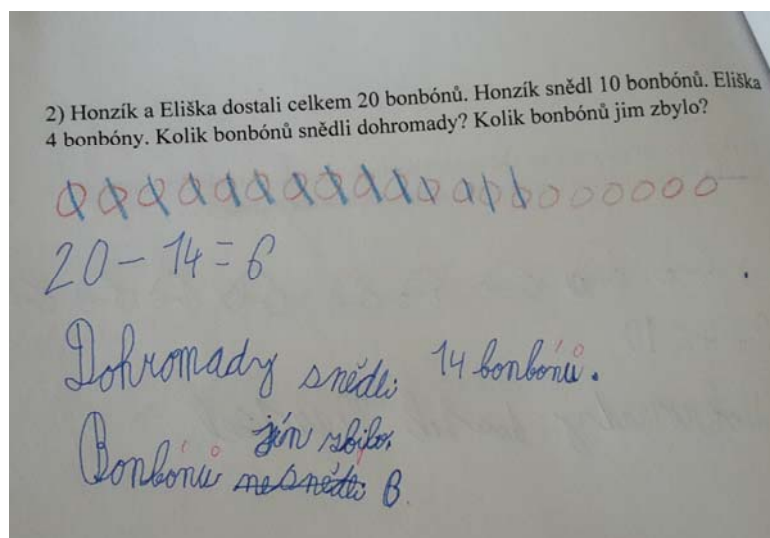 2) Honzík a Eliška dostali celkem 20 bonbónů. Honzík snědl 10 bonbónů. Eliška
4 bonbóny. Kolik bonbónů snědli dohromady? Kolik bonbónů jim zbylo?
20 - 14 = 6
Dohromady snědli 14 bonbónů.
jím zbilo.
Bonbónů nesnědli 6.